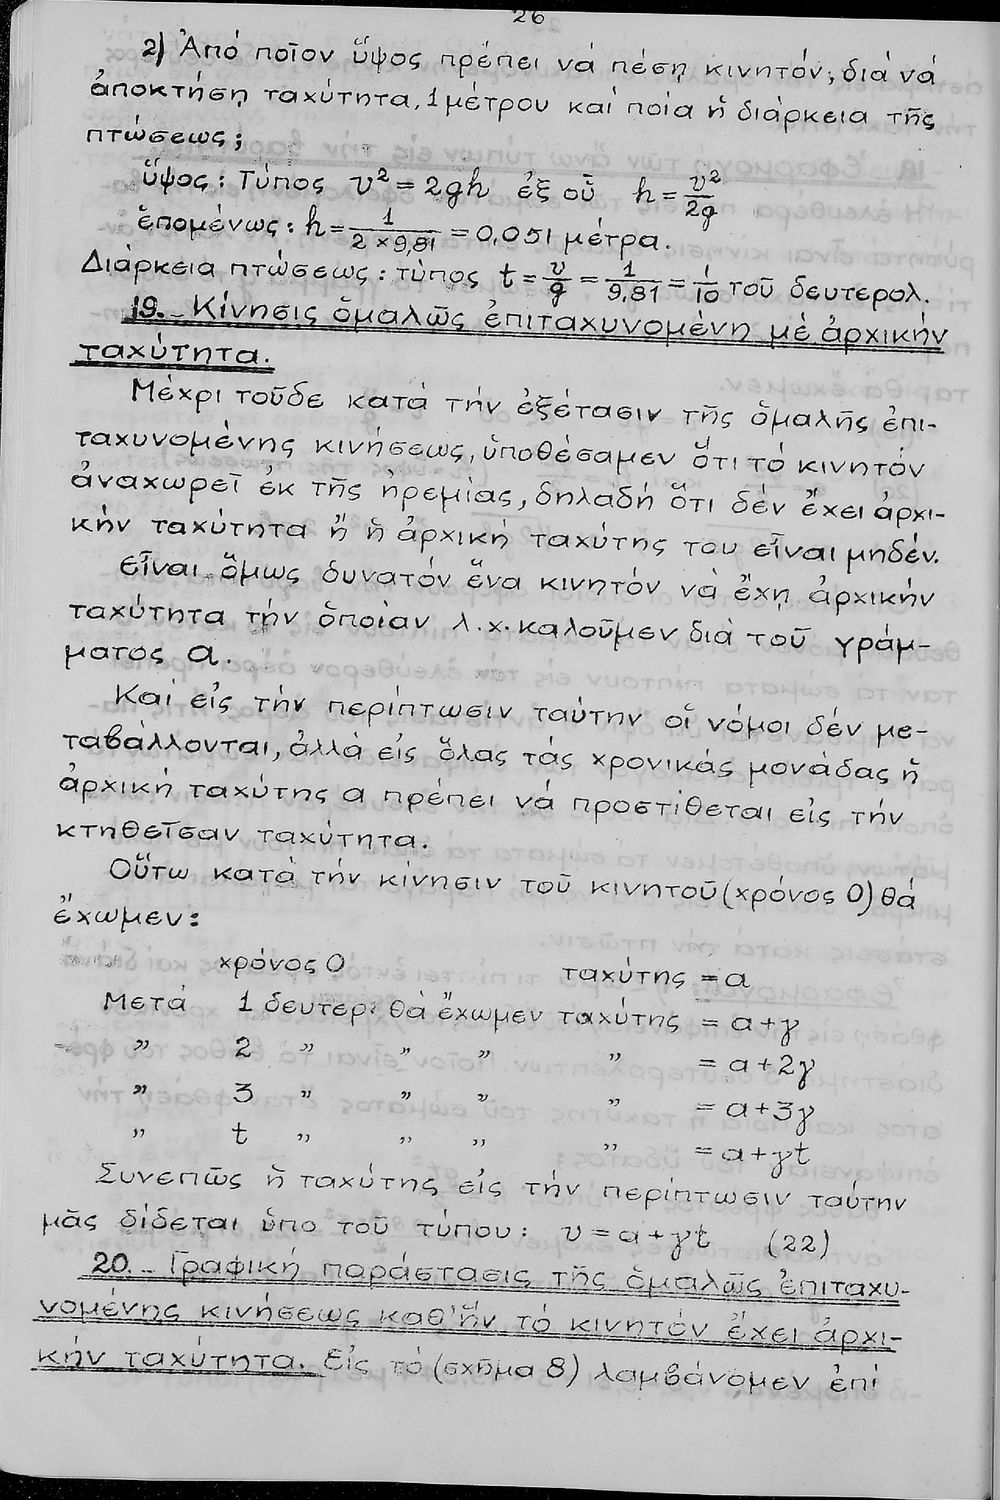 26
2) Ἀπό ποῖον ὕψος πρέπει νά πέσῃ κινητόν, διά νά
ἀποκτήσῃ ταχύτητα, 1 μέτρου καί ποία ἡ διάρκεια τῆς
πτώσεως;
ὕψος: Τύπος v² = 2gh ἐξ οὗ h = v²/2g
ἑπομένως: h = 1/(2×9,81) = 0,051 μέτρα.
Διάρκεια πτώσεως: τύπος t = v/g = 1/9,81 = 1/10 τοῦ δευτερολ.
19.- Κίνησις ὁμαλῶς ἐπιταχυνομένη μέ ἀρχικήν
ταχύτητα.
Μέχρι τοῦδε κατά τήν ἐξέτασιν τῆς ὁμαλῆς ἐπι-
ταχυνομένης κινήσεως, ὑποθέσαμεν ὅτι τό κινητόν
ἀναχωρεῖ ἐκ τῆς ἠρεμίας, δηλαδή ὅτι δέν ἔχει ἀρχι-
κήν ταχύτητα ἤ ἡ ἀρχική ταχύτης του εἶναι μηδέν.
εἶναι ὅμως δυνατόν ἕνα κινητόν νά ἔχῃ ἀρχικήν
ταχύτητα τήν ὁποίαν λ.χ. καλοῦμεν διά τοῦ γράμ-
ματος α.
Καί εἰς τήν περίπτωσιν ταύτην οἱ νόμοι δέν με-
ταβάλλονται, ἀλλά εἰς ὅλας τάς χρονικάς μονάδας ἡ
ἀρχική ταχύτης α πρέπει νά προστίθεται εἰς τήν
κτηθεῖσαν ταχύτητα.
Οὕτω κατά τήν κίνησιν τοῦ κινητοῦ (χρόνος 0) θά
ἔχωμεν:
χρόνος 0 ταχύτης = α
Μετά 1 δευτερ: θά ἔχωμεν ταχύτης = α+γ
„ 2 „ „ „ „ = α+2γ
„ 3 „ „ „ „ = α+3γ
„ t „ „ „ „ = α+γt
Συνεπῶς ἡ ταχύτης εἰς τήν περίπτωσιν ταύτην
μᾶς δίδεται ὑπο τοῦ τύπου: υ = α + γt (22)
20.- Γραφική παράστασις τῆς ὁμαλῶς ἐπιταχυ-
νομένης κινήσεως καθ' ἥν τό κινητόν ἔχει ἀρχι-
κήν ταχύτητα. Εἰς τό (σχῆμα 8) λαμβάνομεν ἐπί